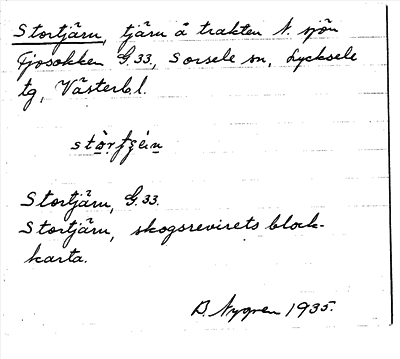 Stortjärn, tjärn å trakten N. sjön
Fjosokken G.33, Sorsele sn, Lycksele
tg, Västerb. l.
Stortjärn, G.33.
Stortjärn, skogsrevirets block-
karta.
B. Nygren 1935.